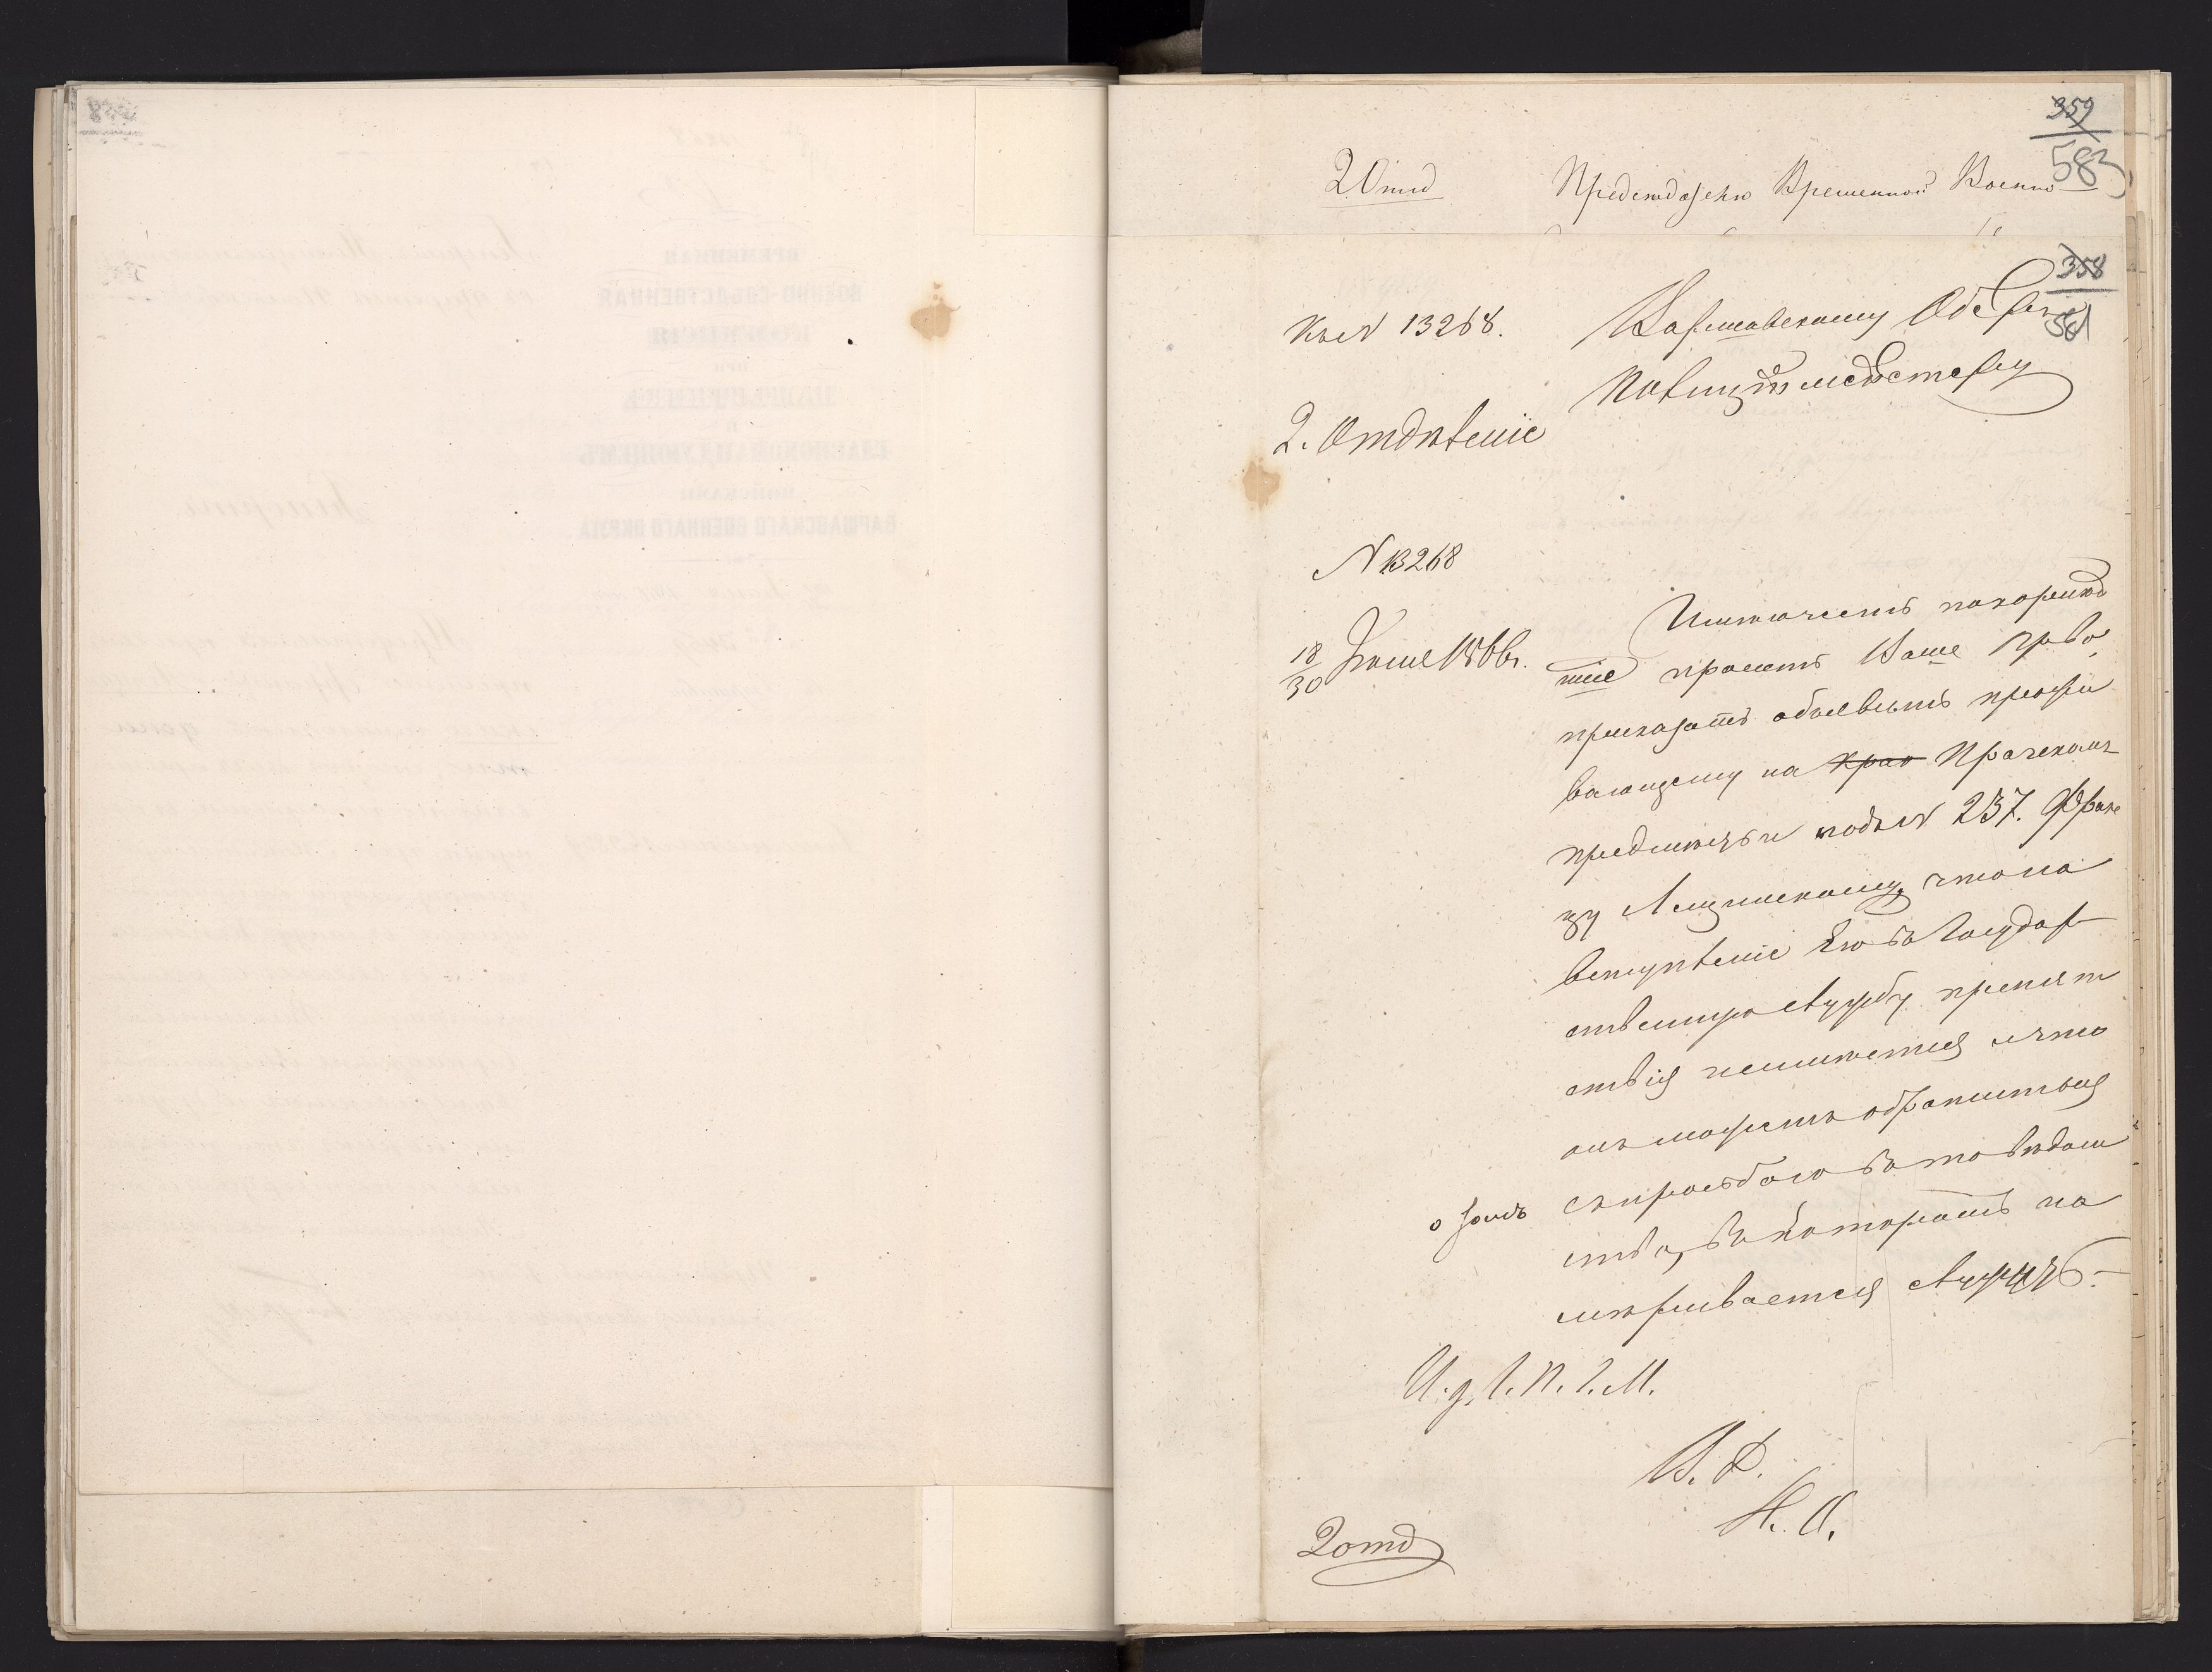 359
583
2 Отд
Председателю Временной Военно
358
581
Къ № 13268.
Варшавскому Оберъ
Полицiймейстеру
2. Отдѣленiе
№ 13268
18/30 Iюня 1866 г.
Имѣю честь покорнѣй
ше просить Ваше Прво
приказать объявить прожи
вающему на Крао Прачекомъ
предмѣстьи подъ № 237. Фран
цу Лещинскому, что на
вступленiе Его въ Государ
ственную службу препят
ствiя неимѣется и что
онъ можетъ обратиться
съ просьбою въ то вѣдом
о семъ
ство, въ которомъ на
мѣривается служить.
И. д. Г. П. Г. М.
В. Р.
Н. О.
2 отд